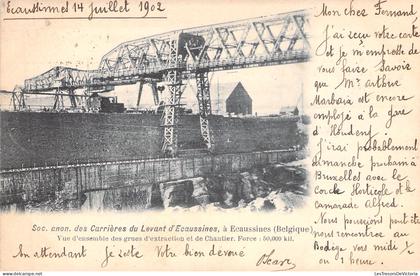 Ecaussinnes 14 juillet 1902
Soc. anon. des Carrières du Levant d'Ecaussines, à Ecaussines (Belgique)
Vue d'ensemble des grues d'extraction et de Chantier. Force : 50,000 kil.
En attendant je reste Votre bien dévoué
Mon cher Fernand
J'ai reçu votre carte
et je m'empresse de
vous faire savoir
que Mr Arthur
Marbaix est encore
employé à la gare
d'Houdeng.
J'irai probablement
dimanche prochain à
Bruxelles avec le
cercle Horticole et le
camarade Alfred.
Nous pourrions peut être
nous rencontrer au
vous midi
© www.LesTresorsDeVictoria